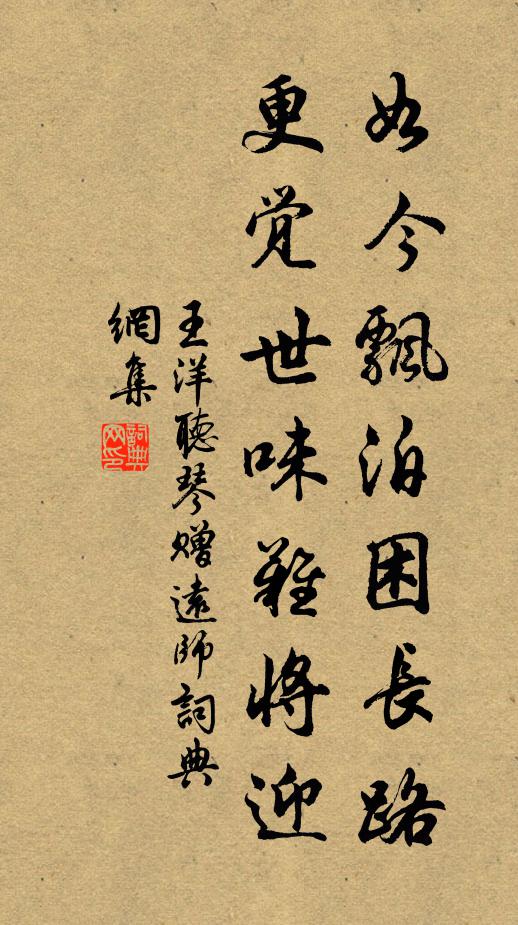 如今飄泊困長路
更覺世味難將迎
王洋聽琴贈遠師詞典
網集
詞典網印